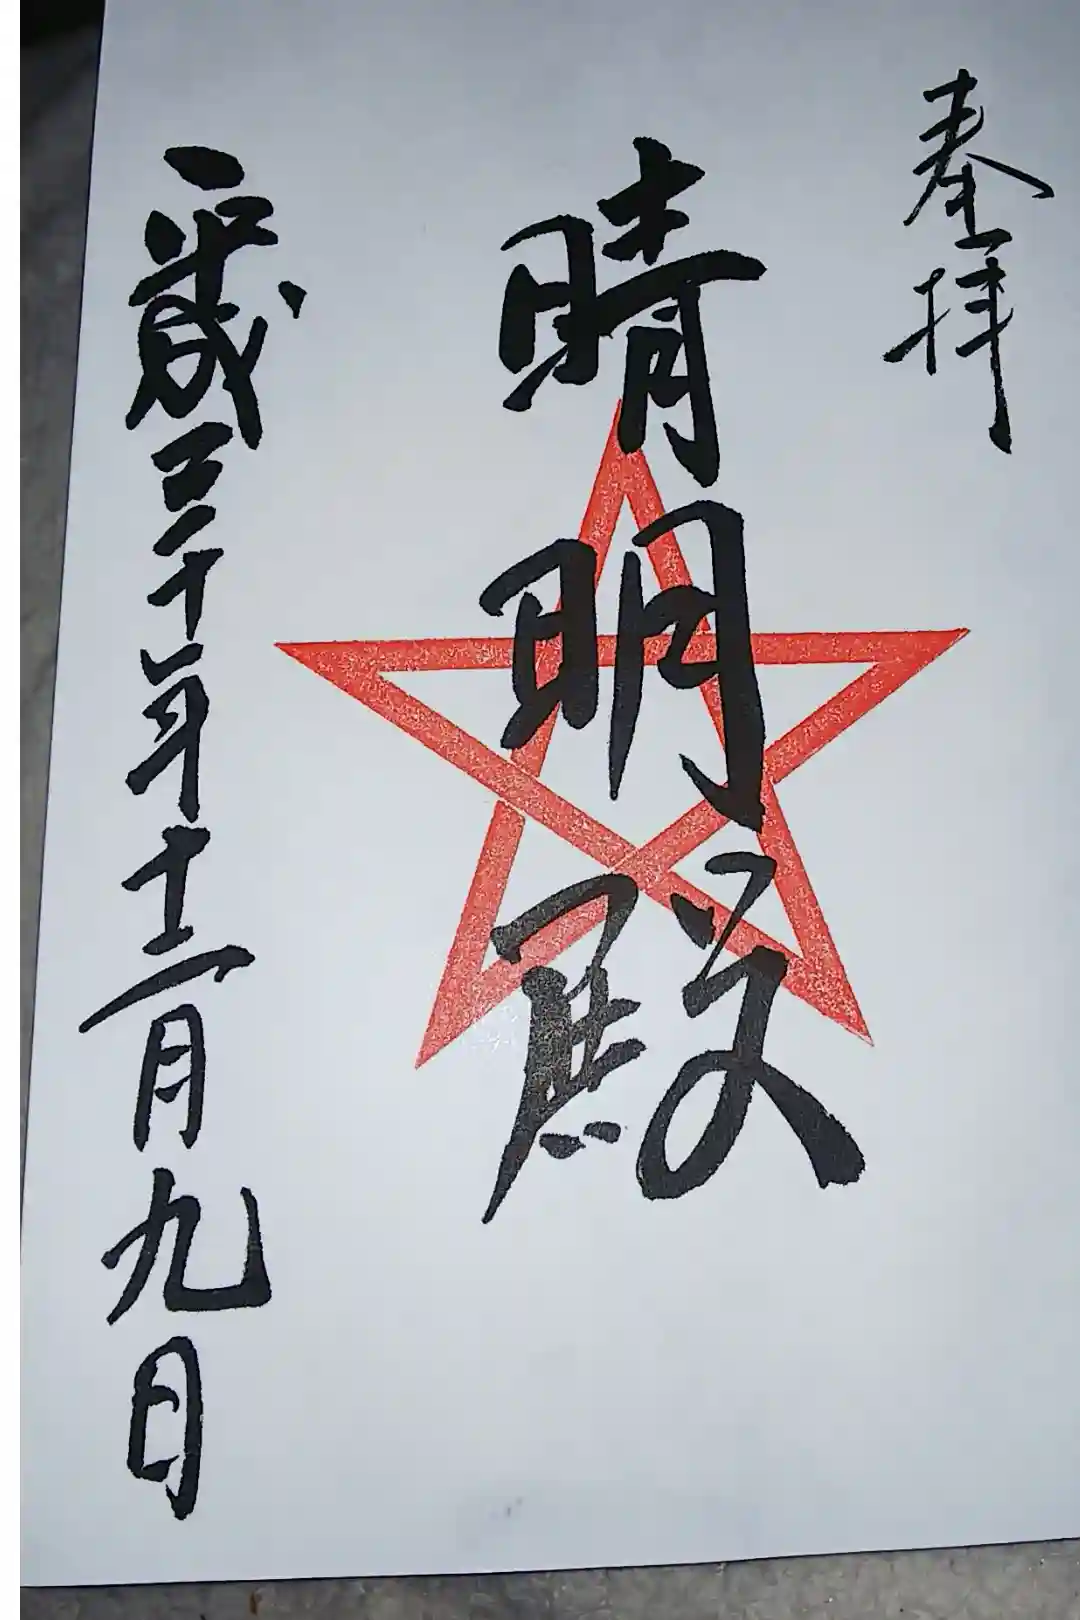 奉拝
晴明殿
平成三十年十一月九日